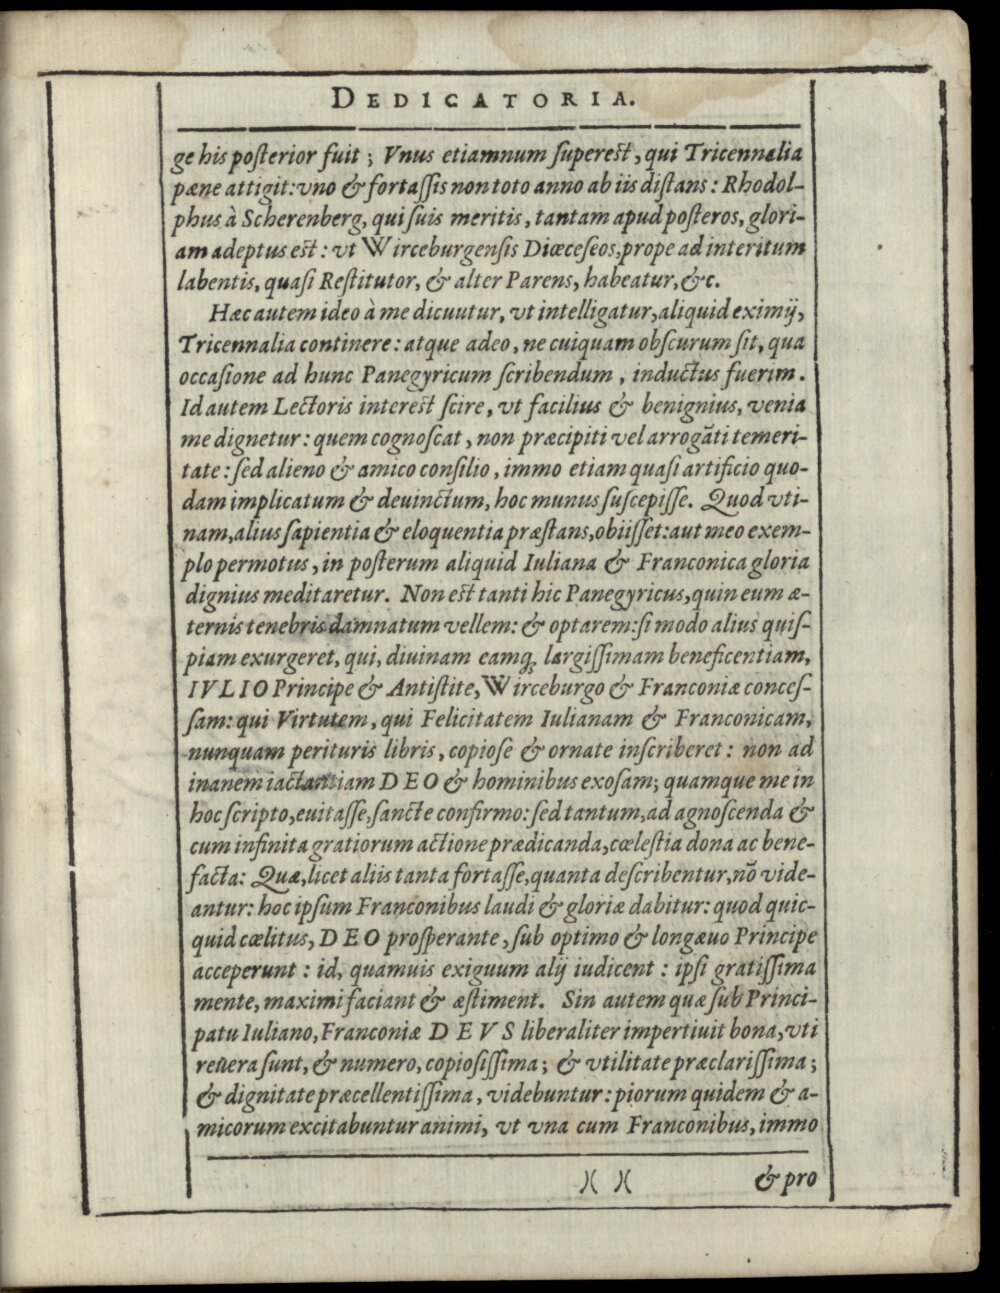 DEDICATORIA.
ge his posterior fuit; Vnus etiamnum superest, qui Tricennalia
pæne attigit: vno & fortassis non toto anno ab iis distans: Rhodol-
phus à Scherenberg, qui suis meritis, tantam apud posteros, glori-
am adeptus est: vt Wirceburgensis Diœceseos, prope ad interitum
labentis, quasi Restitutor, & alter Parens, habeatur, &c.
Hæc autem ideo à me dicuutur, vt intelligatur, aliquid eximij,
Tricennalia continere: atque adeo, ne cuiquam obscurum sit, qua
occasione ad hunc Panegyricum scribendum, inductus fuerim.
Id autem Lectoris interest scire, vt facilius & benignius, venia
me dignetur: quem cognoscat, non præcipiti vel arrogãti temeri-
tate: sed alieno & amico consilio, immo etiam quasi artificio quo-
dam implicatum & deuinctum, hoc munus suscepisse. Quod vti-
nam, alius sapientia & eloquentia præstans, obiisset: aut meo exem-
plo permotus, in posterum aliquid Iuliana & Franconica gloria
dignius meditaretur. Non est tanti hic Panegyricus, quin eum æ-
ternis tenebris damnatum vellem: & optarem: si modo alius quis-
piam exurgeret, qui, diuinam eamq; largissimam beneficentiam,
IVLIO Principe & Antistite, Wirceburgo & Franconiæ conces-
sam: qui Virtutem, qui Felicitatem Iulianam & Franconicam,
nunquam perituris libris, copiose & ornate inscriberet: non ad
inanem iactantiam DEO & hominibus exosam; quamque me in
hoc scripto, euitasse, sancte confirmo: sed tantum, ad agnoscenda &
cum infinita gratiorum actione prædicanda, cœlestia dona ac bene-
facta: Quæ, licet aliis tanta fortasse, quanta describentur, nõ vide-
antur: hoc ipsum Franconibus laudi & gloriæ dabitur: quod quic-
quid cœlitus, DEO prosperante, sub optimo & longæuo Principe
acceperunt: id, quamuis exiguum alij iudicent: ipsi gratissima
mente, maximi faciant & æstiment. Sin autem quæ sub Princi-
patu Iuliano, Franconiæ DEVS liberaliter impertiuit bona, vti
reuera sunt, & numero, copiosissima; & vtilitate præclarissima;
& dignitate præcellentissima, videbuntur: piorum quidem & a-
micorum excitabuntur animi, vt vna cum Franconibus, immo
)( )( & pro